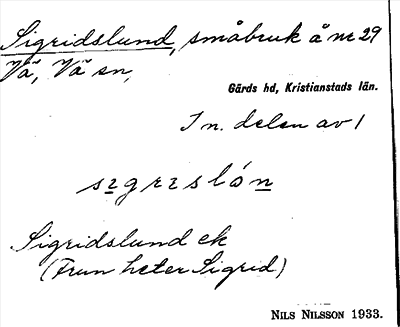 Sigridslund, småbruk å nr 29
Vä, Vä sn,
Gärds hd, Kristianstads län.
I n. delen av 1
segreslón
Sigridslund ek
(Frun heter Sigrid)
NILS NILSSON 1933.